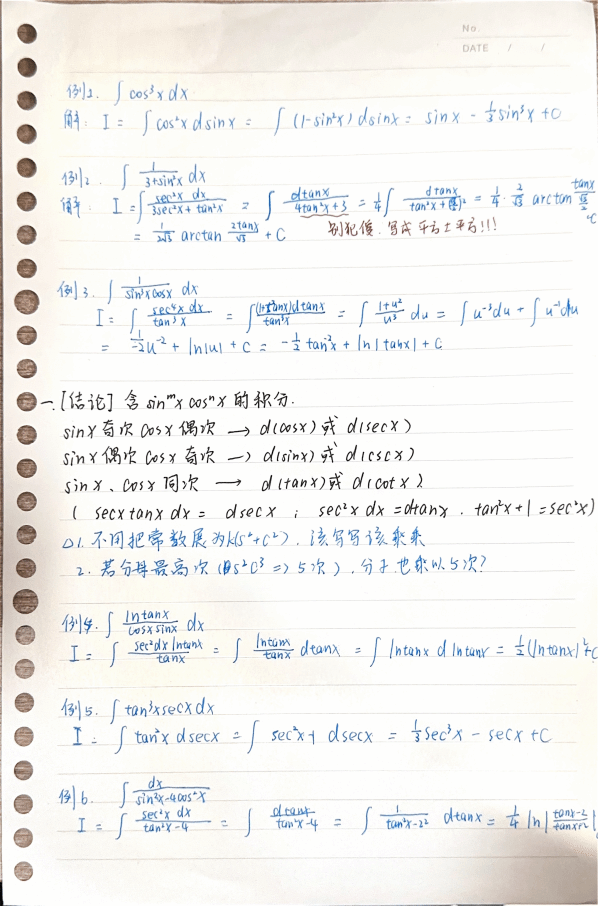 No.
DATE / /
例1. ∫ cos³x dx
解: I = ∫ cos²x dsinx = ∫ (1-sin²x) dsinx = sinx - 1/3 sin³x + C
例2. ∫ 1/(3+sin²x) dx
解: I = ∫ sec²x dx/(3sec²x + tan²x) = ∫ dtanx/(4tan²x+3) = 1/4 ∫ dtanx/(tan²x + (√3/2)²) = 1/4 · 2/√3 arctan tanx/(√3/2) + C
= 1/(2√3) arctan 2tanx/√3 + C 别犯傻. 写成平方±平方!!!
例3. ∫ 1/(sin³xcosx) dx
I = ∫ sec⁴x dx/tan³x = ∫ (1+tan²x)dtanx/tan³x = ∫ (1+u²)/u³ du = ∫ u⁻³du + ∫ u⁻¹du
= 1/-2 u⁻² + ln|u| + C = -1/2 tan⁻²x + ln|tanx| + C
一. [结论] 含 sinᵐx cosⁿx 的积分.
sinx 奇次 cosx 偶次 → d(cosx) 或 d(secx)
sinx 偶次 cosx 奇次 → d(sinx) 或 d(cscx)
sinx、cosx 同次 → d(tanx) 或 d(cotx)
( secxtanx dx = dsecx ; sec²x dx = dtanx . tan²x+1 = sec²x)
△1. 不用把常数展为k(s²+c²), 该写写该乘乘
2. 若分母最高次 (如s²c³ => 5次), 分子也乘以5次?
例4. ∫ lntanx/(cosxsinx) dx
I = ∫ sec²dx lntanx/tanx = ∫ lntanx/tanx dtanx = ∫ lntanx d lntanx = 1/2 (lntanx)² + C
例5. ∫ tan³xsecxdx
I = ∫ tan²x dsecx = ∫ sec²x-1 dsecx = 1/3 sec³x - secx + C
例6. ∫ dx/(sin²x-4cos²x)
I = ∫ sec²x dx/(tan²x-4) = ∫ dtanx/(tan²x-4) = ∫ 1/(tan²x-2²) dtanx = 1/4 ln|(tanx-2)/(tanx+2)|